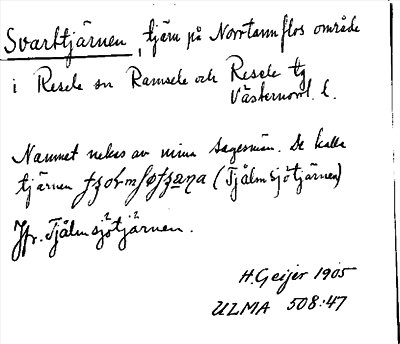 Svarttjärnen, tjärn på Norrtannflos område
i Resele sn Ramsele och Resele tg
Västernorrl. l.
Namnet nekas av mina sagesmän. De kalla
tjärnen (Tjålmsjötjärnen)
Jfr. Tjålmsjötjärnen.
H. Geijer 1905
ULMA 508:47